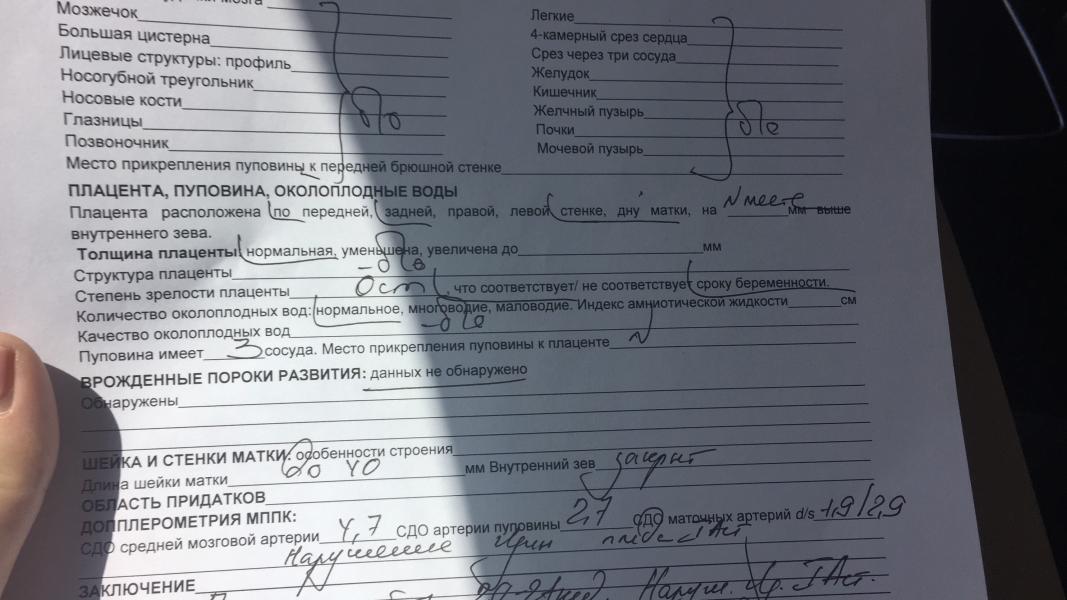 мозга
Мозжечок
Большая цистерна
Лицевые структуры: профиль
Носогубной треугольник
Носовые кости
Глазницы
Позвоночник
б/о
Легкие
4-камерный срез сердца
Срез через три сосуда
Желудок
Кишечник
Желчный пузырь
Почки
Мочевой пузырь
б/о
Место прикрепления пуповины к передней брюшной стенке
ПЛАЦЕНТА, ПУПОВИНА, ОКОЛОПЛОДНЫЕ ВОДЫ
Плацента расположена по передней, задней, правой, левой стенке, дну матки, на N месте мм выше
внутреннего зева.
Толщина плаценты: нормальная, уменьшена, увеличена до мм
Структура плаценты - б/о
Степень зрелости плаценты 0 ст, что соответствует/ не соответствует сроку беременности.
Количество околоплодных вод: нормальное, многоводие, маловодие. Индекс амниотической жидкости см
Качество околоплодных вод - б/о
Пуповина имеет 3 сосуда. Место прикрепления пуповины к плаценте N
ВРОЖДЕННЫЕ ПОРОКИ РАЗВИТИЯ: данных не обнаружено
Обнаружены
ШЕЙКА И СТЕНКИ МАТКИ: особенности строения
Длина шейки матки до 40 мм Внутренний зев закрыт
ОБЛАСТЬ ПРИДАТКОВ
ДОППЛЕРОМЕТРИЯ МППК:
СДО средней мозговой артерии 4,7 СДО артерии пуповины 2,7 СДО маточных артерий d/s 1,9/2,9
Нарушение
ЗАКЛЮЧЕНИЕ Наруш.